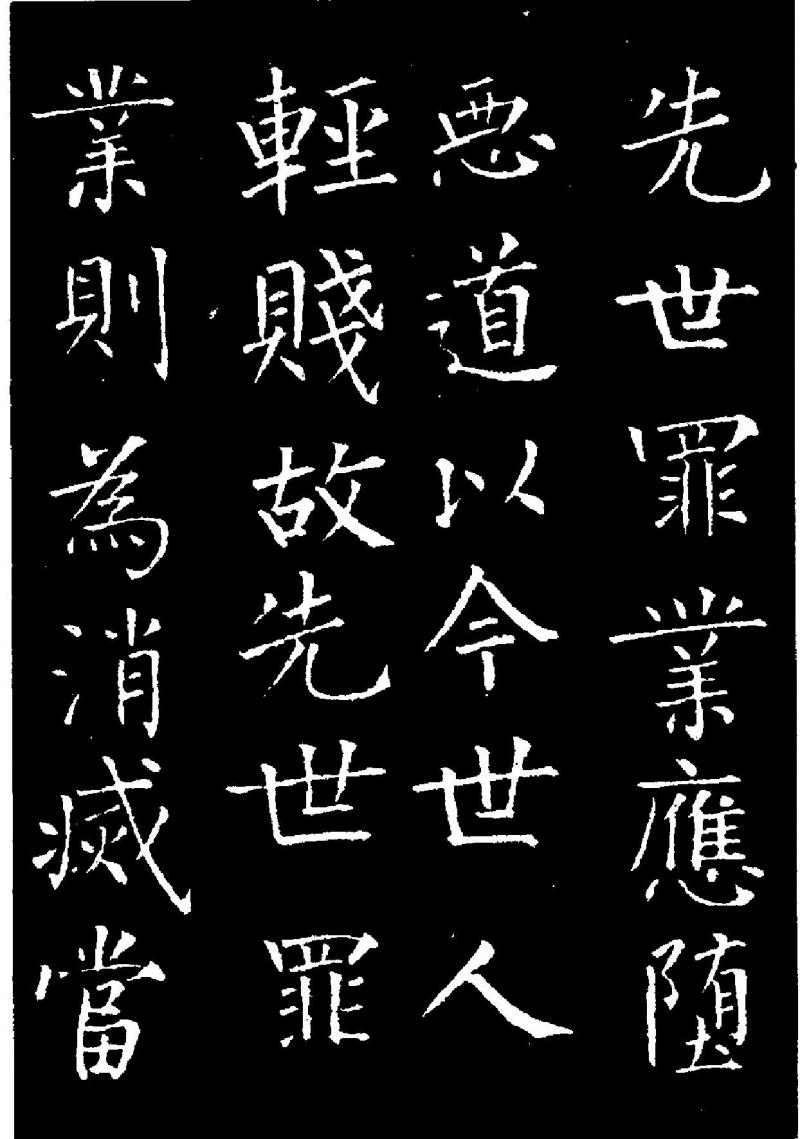 先世罪業應堕
惡道以今世人
輕賤故先世罪
業則為消滅當